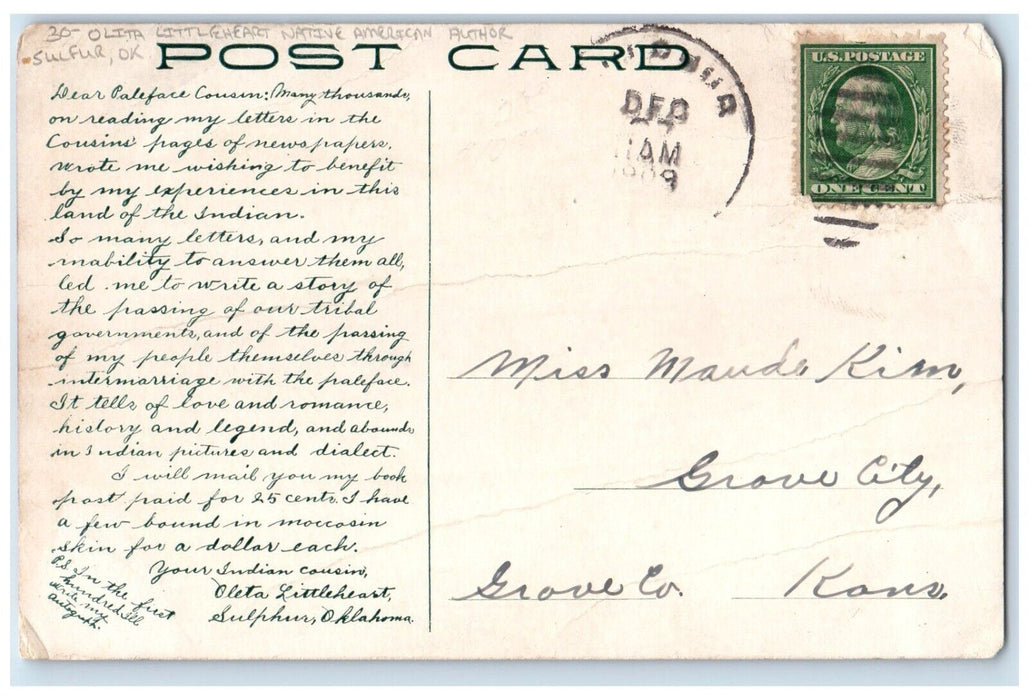 30- OLITA LITTLEHEART NATIVE AMERICAN AUTHOR
SULFUR, OK
POST CARD
Dear Paleface Cousin: Many thousands,
on reading my letters in the
Cousins' pages of newspapers,
wrote me wishing to benefit
by my experiences in this
land of the Indian.
So many letters, and my
inability to answer them all,
led me to write a story of
the passing of our tribal
governments, and of the passing
of my people themselves through
intermarriage with the paleface.
It tells of love and romance,
history and legend, and abounds
in Indian pictures and dialect.
I will mail you my book
post paid for 25 cents. I have
a few bound in moccosin
skin for a dollar each.
Your Indian cousin,
Oleta Littleheart,
Sulphur, Oklahoma.
P.S. In the first
hundred I'll
write my
autograph.
DEC
AM
1909
U.S. POSTAGE
ONE CENT
Miss Maude Kim,
Grove City,
Grove Co. Kans.